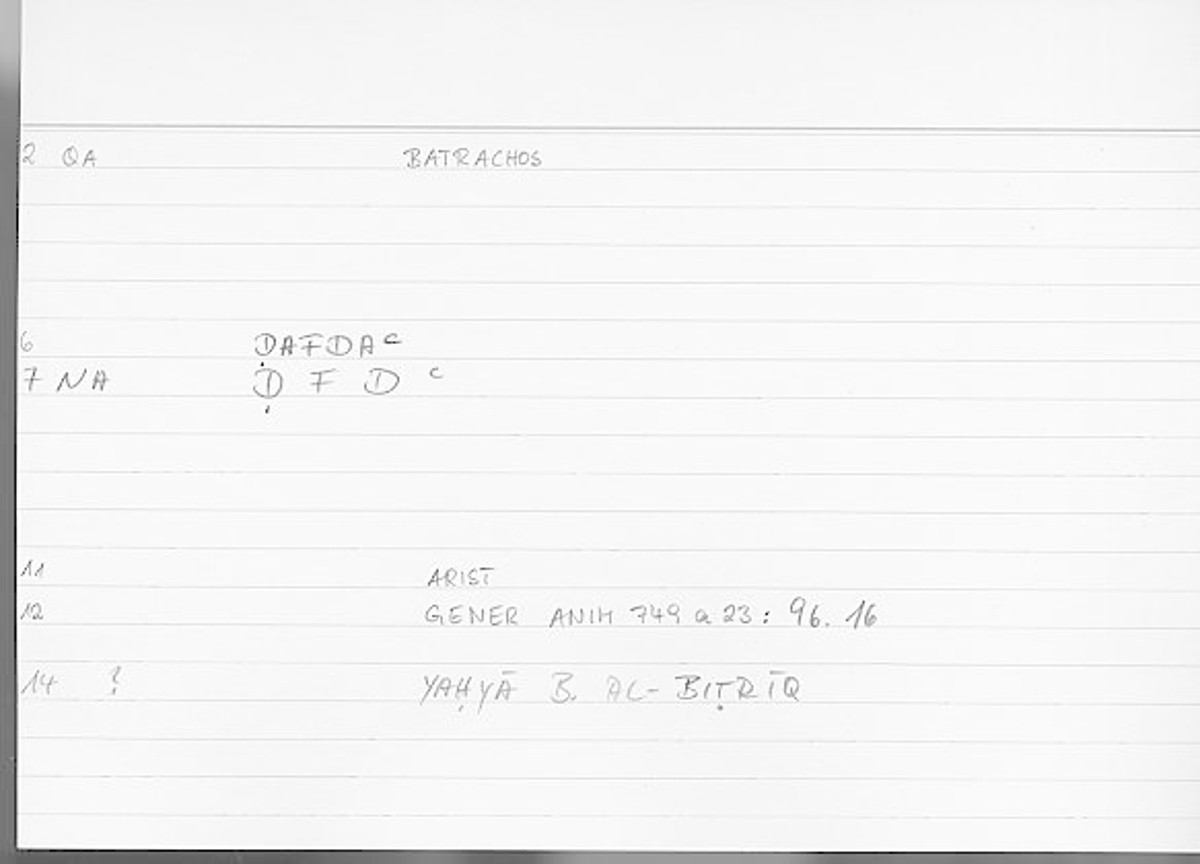 2 QA BATRACHOS
6 ḌAFDAᶜ
7 NA Ḍ F D ᶜ
11 ARIST
12 GENER ANIM 749 a 23 : 96. 16
14 ? YAḤYĀ B. AL-BIṬRĪQ